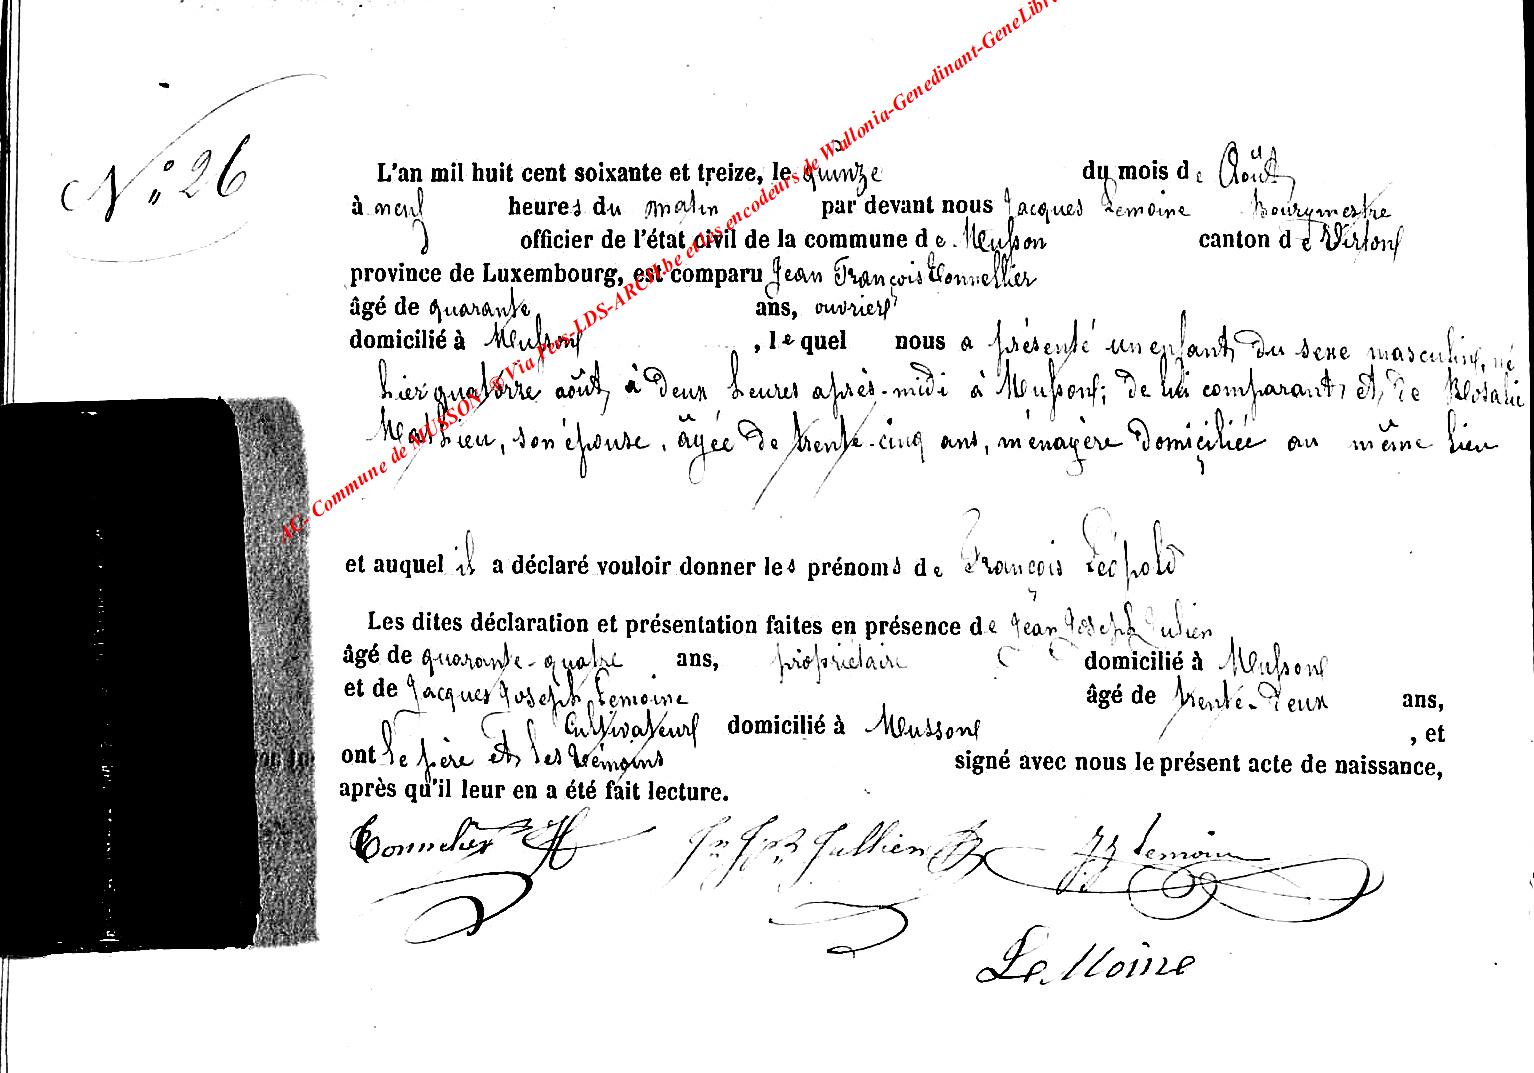 N° 26
L'an mil huit cent soixante et treize, le quinze du mois de Août
à neuf heures du matin par devant nous Jacques Lemoine Bourgmestre
officier de l'état civil de la commune de Musson canton de Virton
province de Luxembourg, est comparu Jean François Tonnellier
âgé de quarante ans, ouvrier
domicilié à Musson , lequel nous a présenté un enfant du sexe masculin, né
hier quatorze août à deux heures après-midi à Musson; de lui comparant et de Rosalie
Mathieu, son épouse, âgée de trente-cinq ans, ménagère domiciliée au même lieu
et auquel il a déclaré vouloir donner les prénoms de François Léopold
Les dites déclaration et présentation faites en présence de Jean Joseph Julien
âgé de quarante-quatre ans, propriétaire domicilié à Musson
et de Jacques Joseph Lemoine âgé de trente-deux ans,
Cultivateur domicilié à Musson , et
ont le père et les témoins signé avec nous le présent acte de naissance,
après qu'il leur en a été fait lecture.
Tonnelier Jn Jph Jullien JJ Lemoine
Le Moine
AC- Commune de MUSSON @Via Pers-LDS-ARCH.be et les encodeurs de Wallonia-Genedinant-GeneLibr